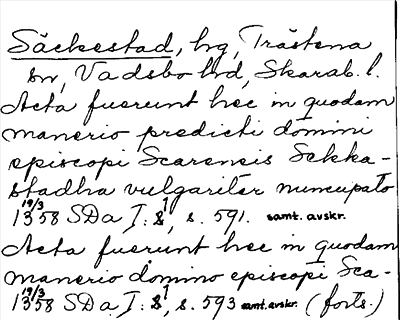 Säckestad, hg, Trästena
sn, Vadsbo hd, Skarab. l.
Acta fuerunt hec in quodam
manerio predicti domini
episcopi Scarensis Sekka-
stadha vulgariter nuncupato
19/3 1358 SDa I: 1, s. 591. samt. avskr.
Acta fuerunt hec in quodam
manerio domino episcopi Sca-
19/3 1358 SDa I: 1, s. 593 samt. avskr. (forts.)